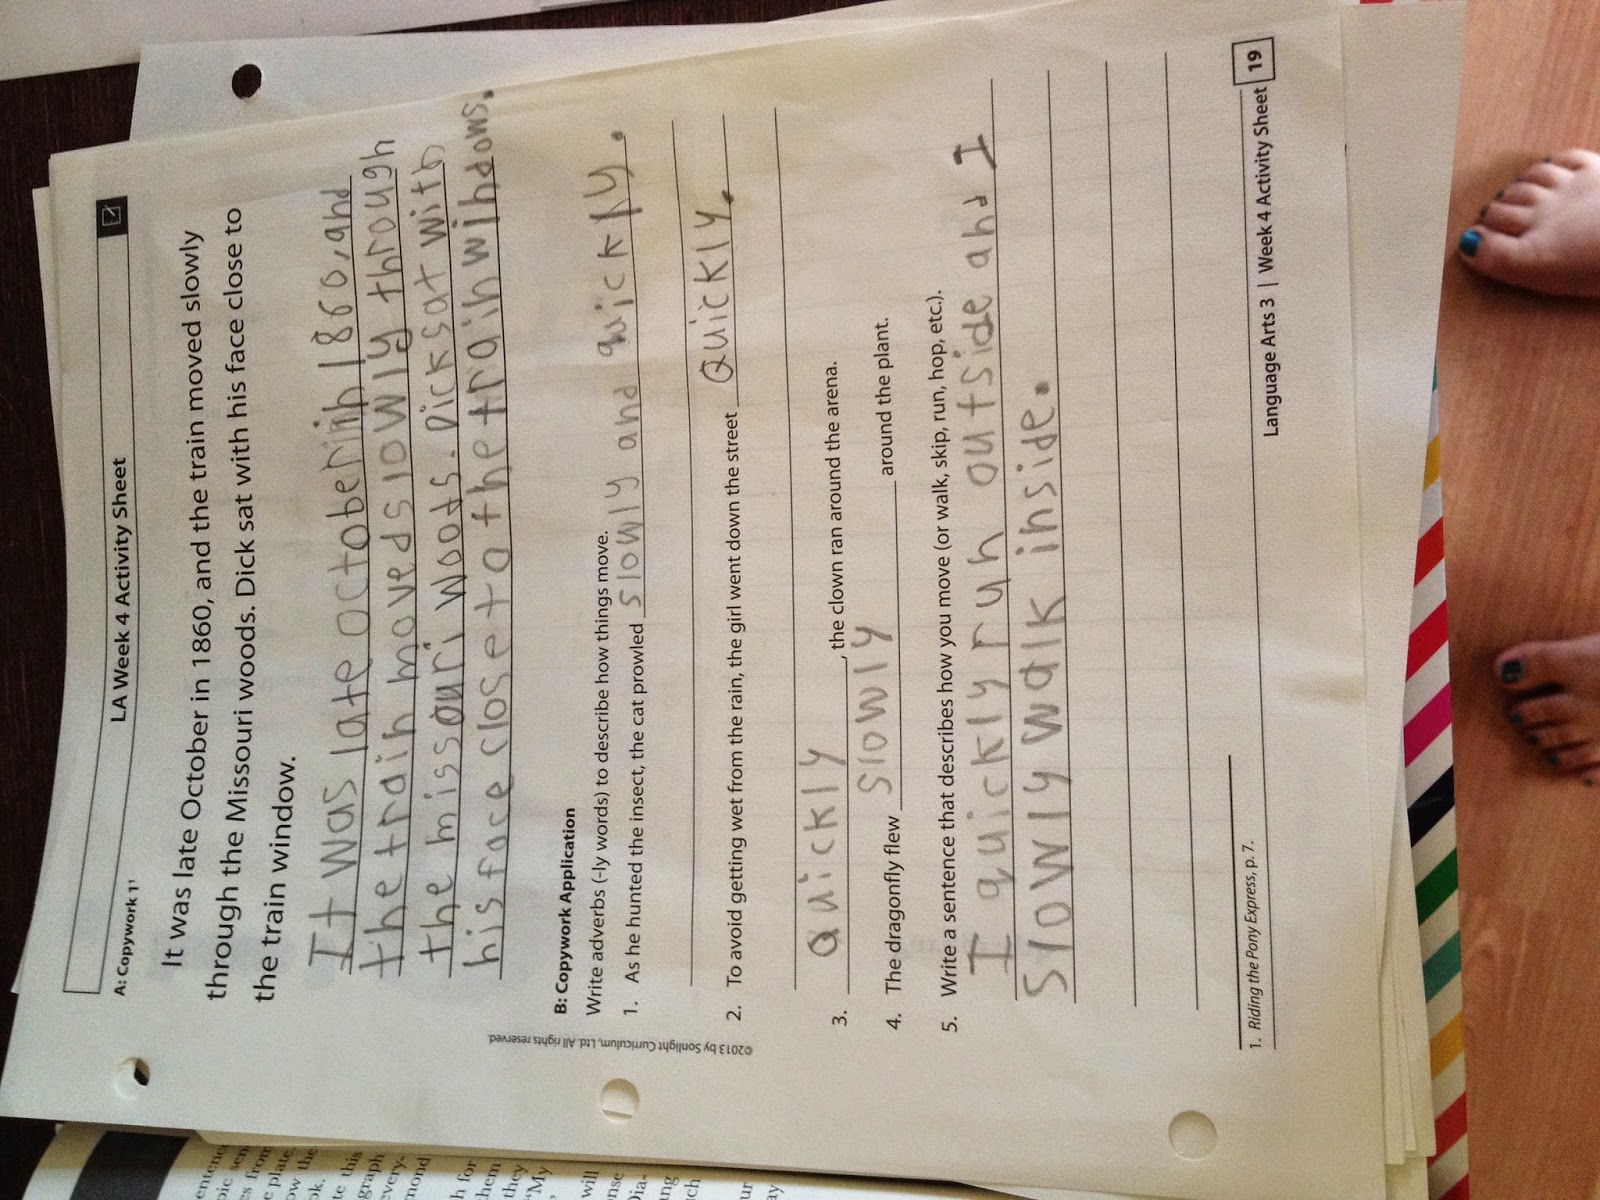 LA Week 4 Activity Sheet
A: Copywork 1¹
It was late October in 1860, and the train moved slowly
through the Missouri woods. Dick sat with his face close to
the train window.
It was late october in 1860, and
the train moved slowly through
the missouri woods. Dick sat with
his face close to the train windows.
B: Copywork Application
Write adverbs (-ly words) to describe how things move.
1. As he hunted the insect, the cat prowled slowly and quickly.
2. To avoid getting wet from the rain, the girl went down the street Quickly.
3. Quickly, the clown ran around the arena.
4. The dragonfly flew slowly around the plant.
5. Write a sentence that describes how you move (or walk, skip, run, hop, etc.).
I quickly run outside and I
slowly walk inside.
1. Riding the Pony Express, p. 7.
Language Arts 3 | Week 4 Activity Sheet 19
©2013 by Sonlight Curriculum, Ltd. All rights reserved.